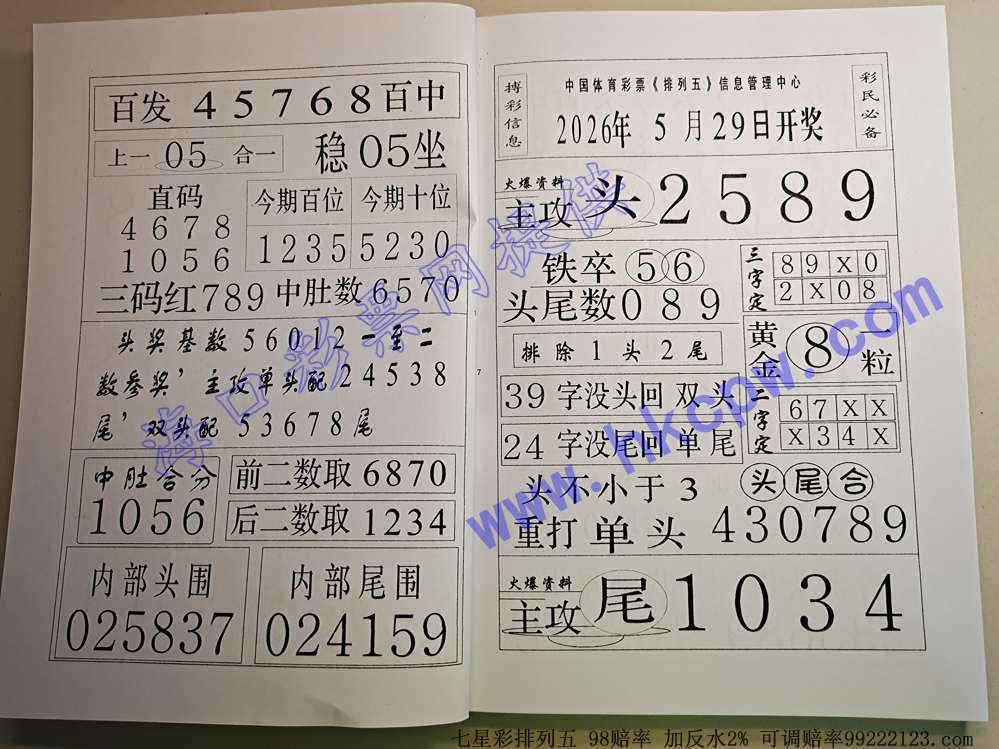 百发 45768 百中
上一 05 合一 稳05坐
直码
4678
1056
今期百位 今期十位
1235 5230
三码红789 中肚数6570
头奖基数56012一至二
数参奖’主攻单头配24538
尾’双头配53678尾
中肚合分
1056
前二数取6870
后二数取1234
内部头围
025837
内部尾围
024159
1
7
搏彩信息
中国体育彩票《排列五》信息管理中心
2026年 5月29日开奖
彩民必备
火爆资料
主攻 头 2589
铁卒 56
头尾数089
三字定
89X0
2X08
排除1头2尾
黄金 8 一粒
39字没头回双头
24字没尾回单尾
二字定
67XX
X34X
头不小于3 头尾合
重打单头430789
火爆资料
主攻 尾 1034
海口彩票网提供
www.hkcpw.com
七星彩排列五 98赔率 加反水2% 可调赔率99222123.com